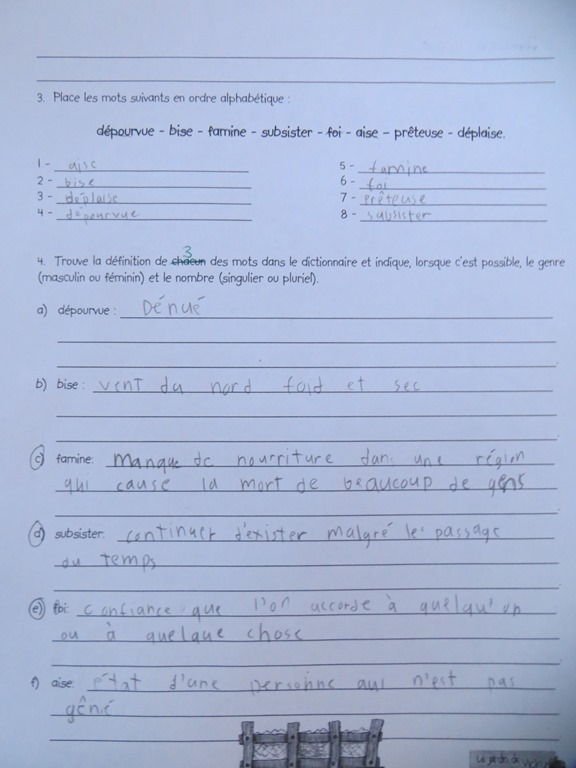 3. Place les mots suivants en ordre alphabétique :
dépourvue - bise - famine - subsister - foi - aise - prêteuse - déplaise.
1 - aise
2 - bise
3 - déplaise
4 - dépourvue
5 - famine
6 - foi
7 - prêteuse
8 - subsister
3
4. Trouve la définition de chacun des mots dans le dictionnaire et indique, lorsque c'est possible, le genre
(masculin ou féminin) et le nombre (singulier ou pluriel).
a) dépourvue : Dénué
b) bise : vent du nord foid et sec
c) famine: manque de nourriture dans une région
qui cause la mort de beaucoup de gens
d) subsister: continuer d'exister malgré le passage
du temps
e) foi: confiance que l'on accorde à quelqu'un
ou à quelque chose
f) aise: état d'une personne qui n'est pas
gêné